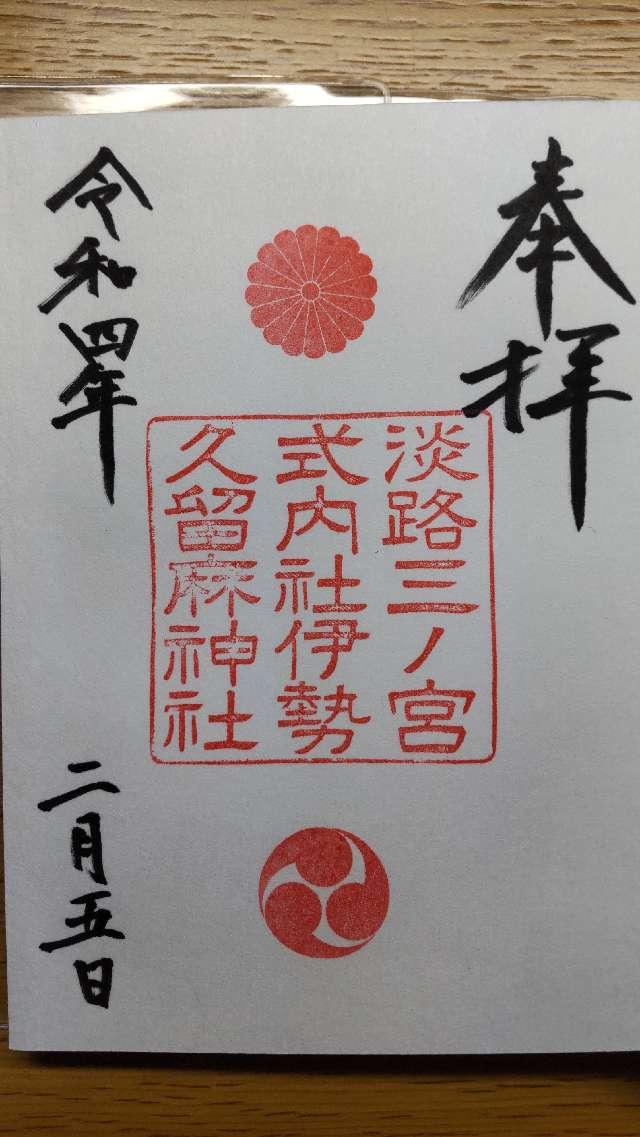 奉拝
淡路三ノ宮
式内社伊勢
久留麻神社
令和四年
二月五日